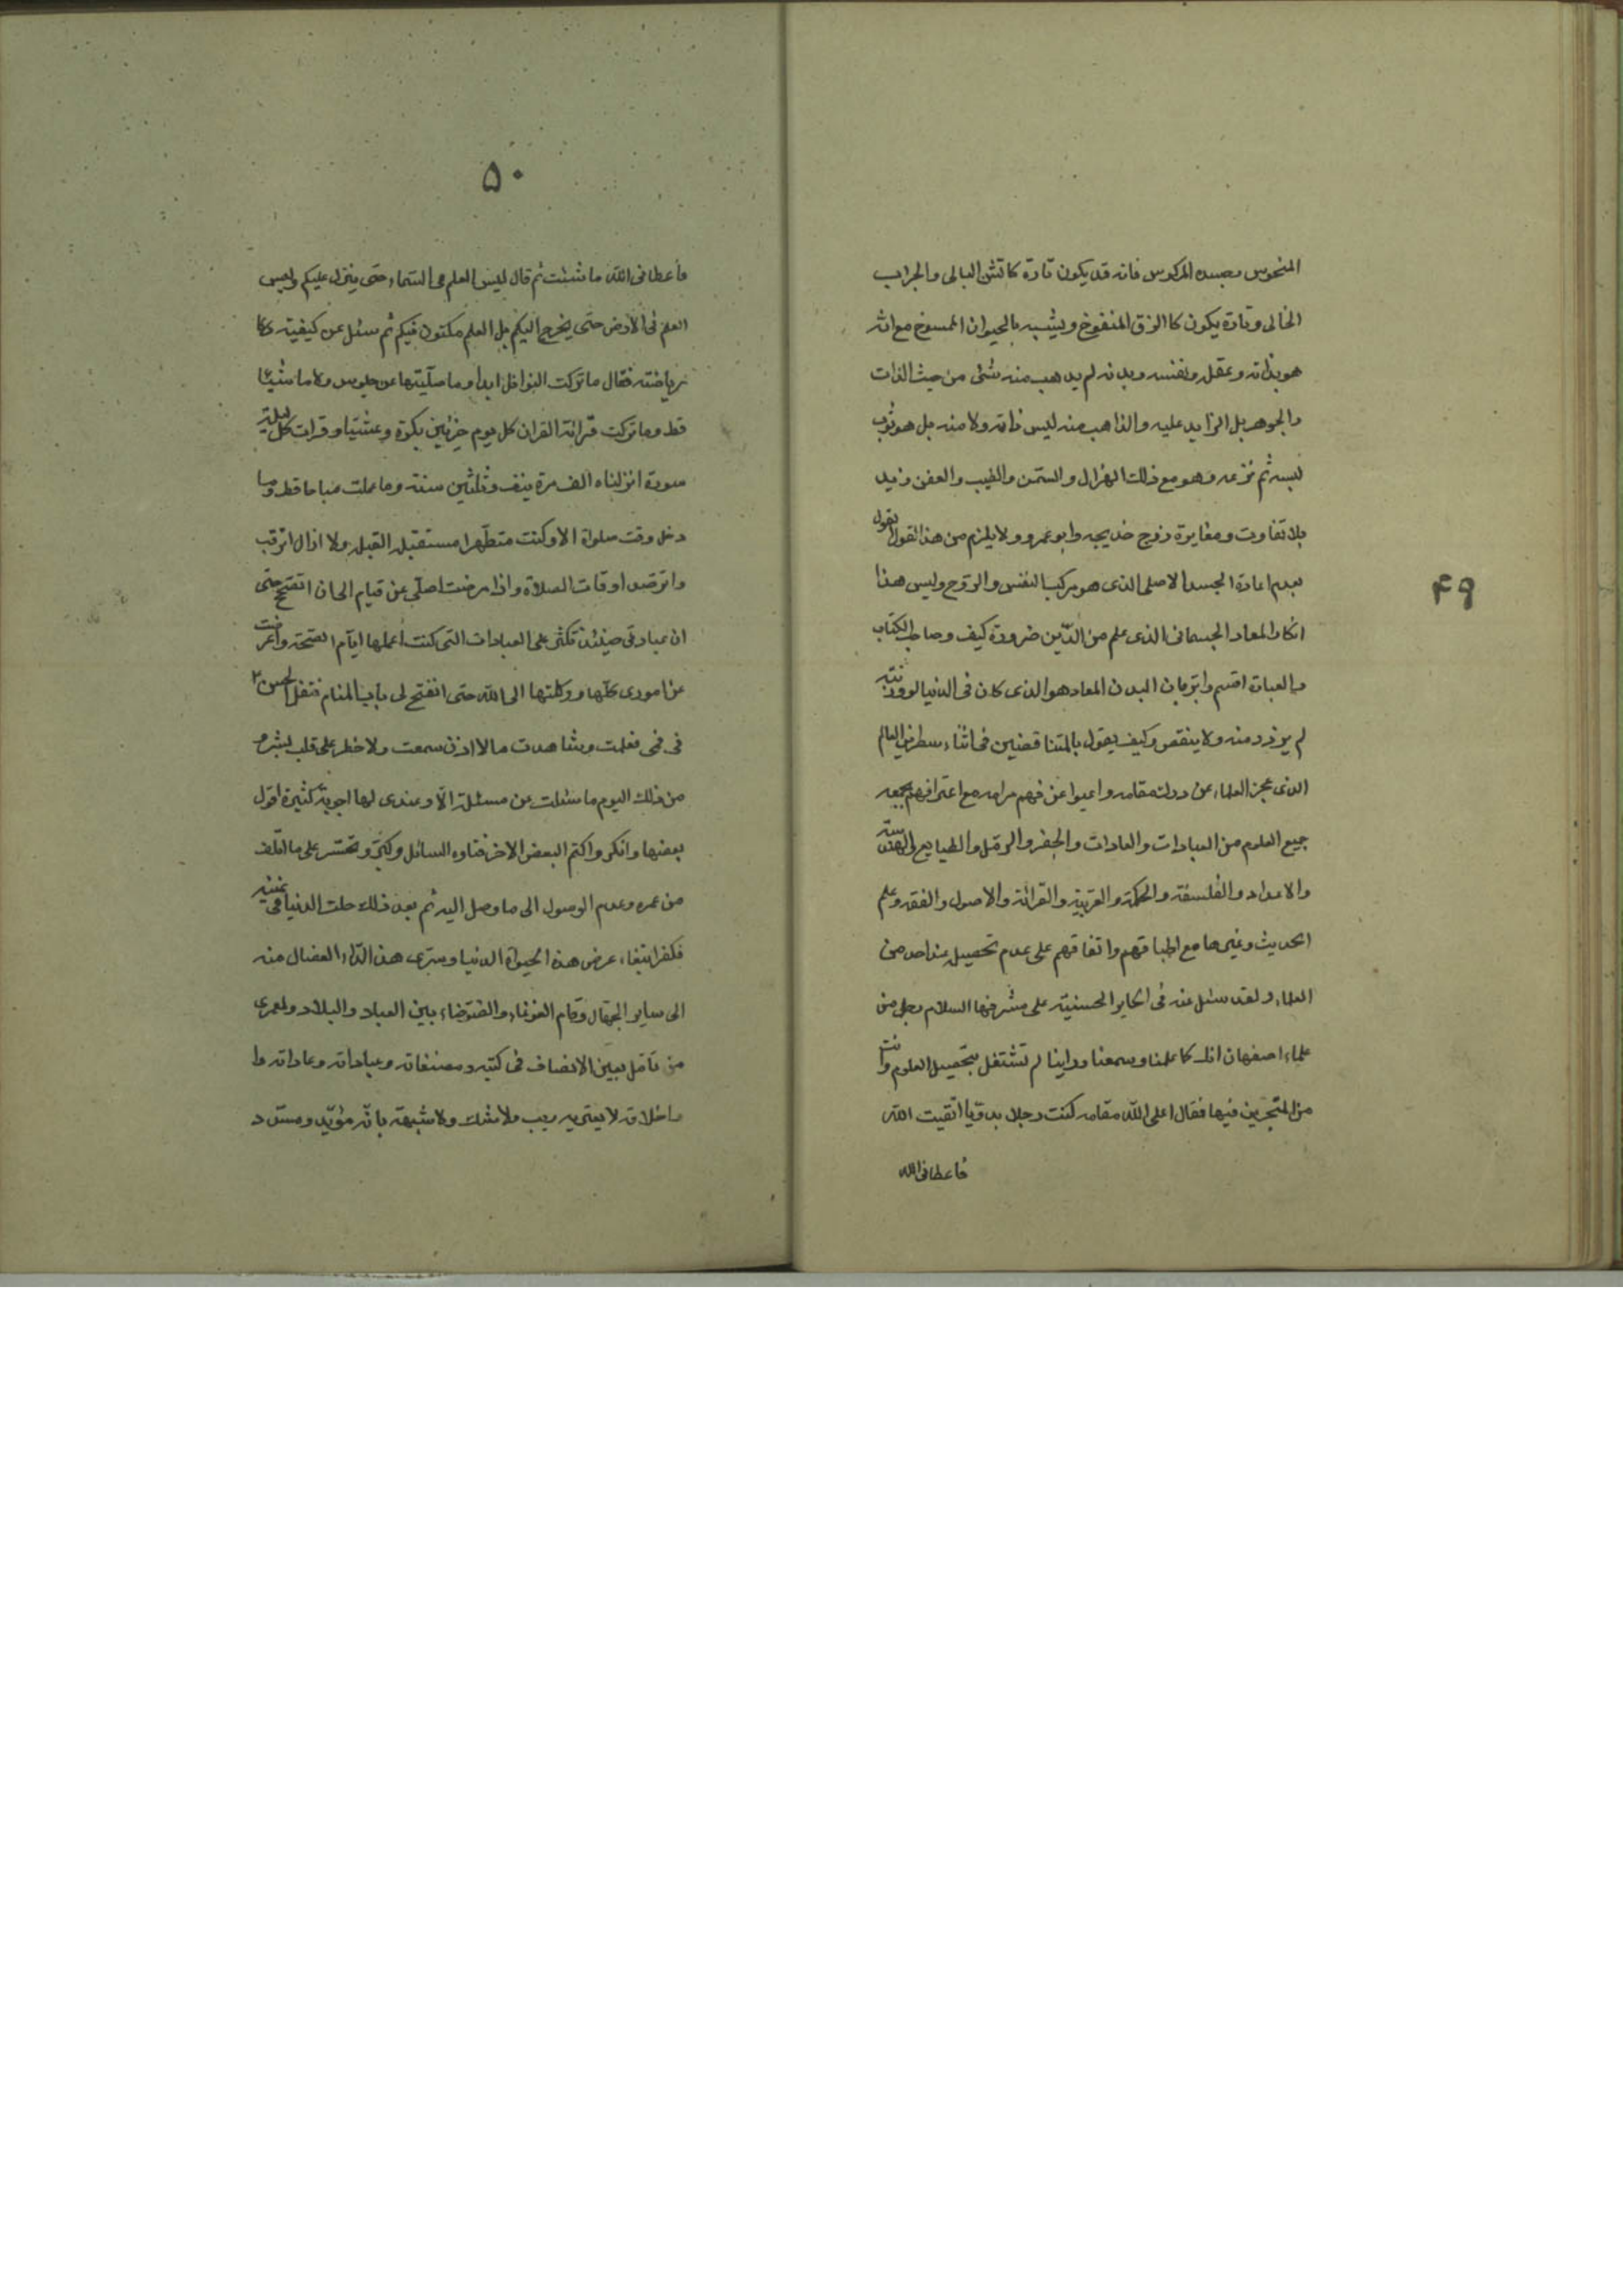 ۴۹
المنحوس بجسده المركوس فانه قد يكون تارة كالشن البالى والجراب
الخالى وتارة يكون كالزق المنفوخ ويشبه بالحيوان الممسوخ مع انه
هو بذاته وعقله ونفسه وبدنه لم يذهب منه شئ من حيث الذات
والجوهر بل الزايد عليه والذاهب منه ليس ذاته ولا منه بل هو ثوب
لبسه ثم نزعه وهو مع ذلك الهزال والسمن والطيب والعفن وزيد
بلا تفاوت ومغايرة زوج خديجه وابو عمرو ولا يلزم من هذا القول القول
بعدم اعادة الجسد الاصلى الذى هو مركب النفس والروح وليس هذا
انكار المعاد الجسمانى الذى علم من الدّين ضرورة كيف وصاحب الكتاب
بالعبات اقسم وابر بان البدن المعاد هو الذى كان فى الدنيا لو وزنته
لم يزد منه ولا ينقص وكيف يقول بالمتناقضين فى اثناء سطرين العالم
الذى عجز العلماء عن درك مقامه واعيوا عن فهم مرامه مع اعترافهم بجمعه
جميع العلوم من العبادات والعادات والجفر والرمل والطبايع الى الهندسة
والاعداد والفلسفة والحكمة والعربية والقرائة والاصول والفقه وعلم
الحديث وغيرها مع اطباقهم واتفاقهم على عدم تحصيل عند احد من
العلماء ولقد سئل عنه فى الحاير الحسنية على مشرفها السلام رجل من
علماء اصفهان انك كما علمنا وسمعنا وراينا لم تشتغل بتحصيل العلوم وانت
من المتبحرين فيها فقال اعلى اللّه مقامه كنت رجلا بدويا اتقيت اللّه
فاعطانى الله
۵۰
فأعطانى اللّه ما شئت ثم قال ليس العلم فى السّماء حتى ينزل عليكم وليس
العلم فى الأرض حتى يخرج اليكم بل العلم مكتون فيكم ثم سئل عن كيفية
رياضته فقال ما تركت النوافل ابدا وما صلّيتها عن جلوس ولا ماشيا
قط وما تركت قرائة القران كل يوم حزبين بكرة وعشيّا وقرات كل ليلة
سورة انزلناه الف مرة بنف وثلثين سنة وما عملت مباحا قط وما
دخل وقت صلواة الا وكنت متطهرا مستقبل القبلة ولا ازال اترقب
واترصد اوقات الصلاة واذا مرضت اصلّى عن قيام الى ان اتقح حتى
ان عبادتى حينئذ تكثر على العبادات التى كنت اعملها ايام الصحة واعرضت
عن امورى كلّها ووكلتها الى اللّه حتى انفتح لى باب المنام فتفل الحسن ٢
فى فمى فعلمت وشاهدت ما لا اذن سمعت ولا خطر على قلب بشر و
من ذلك اليوم ما سئلت عن مسئلة الّا وعندى لها اجوبة كثيرة اقول
بعضها وانكر واكتم البعض الاخر فتاوه السائل وبكى وتحسّر على ما اتلف
من عمره وعدم الوصول الى ما وصل اليه ثم بعد ذلك حلت الدنيا فى عينيه
فكفر ابتغاء عرض هذه الحيواة الدنيا وسرى هذا الدّاء العضال منه
الى ساير الجهّال وقام الغوغاء والضوضاء بين العباد والبلاد ولعمرى
من تأمّل بعين الانصاف فى كتبه ومصنفاته وعباداته وعاداته وا
واخلاقه لا يعتريه ريب ولا شك ولا شبهة بانّه مؤيّد ومسدد